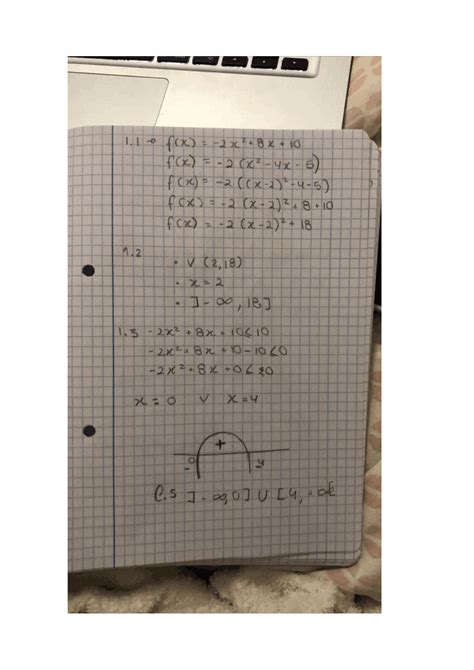 1.1 → f(x) = -2x²+8x+10
f(x) = -2(x²-4x-5)
f(x) = -2((x-2)²-4-5)
f(x) = -2(x-2)²+8+10
f(x) = -2(x-2)²+18
1.2
• V (2,18)
• x=2
• ]-∞,18]
1.3 -2x²+8x+10≤10
-2x²+8x+10-10≤0
-2x²+8x+0≤
x=0 V x=4
+
- 0
C.S ]-∞,0] U [4,+∞[